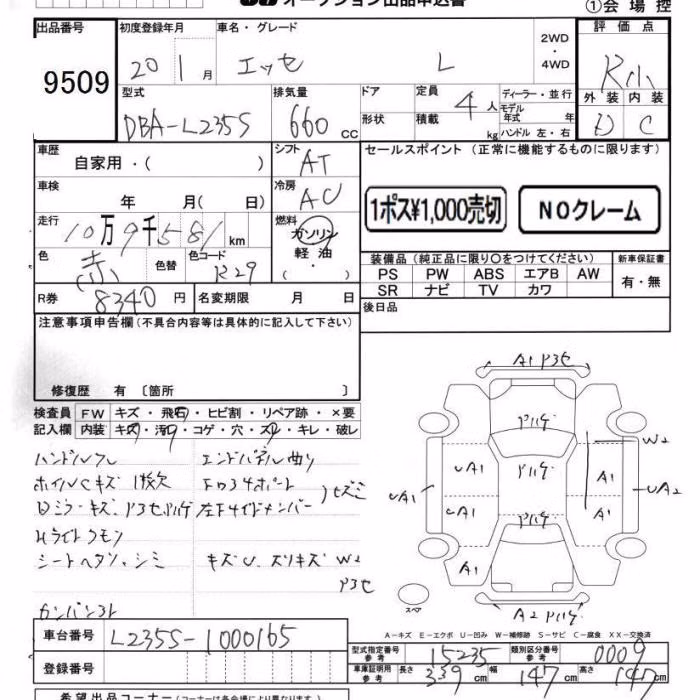 オークション出品申込書
①会場控
出品番号 初度登録年月 車名・グレード 2WD・4WD 評価点
9509 20 1月 エッセ L R小
型式 排気量 ドア 定員 ディーラー・並行 外装 内装
DBA-L235S 660cc 形状 積載 4人 kg モデル年式 年 D C
ハンドル 左・右
車歴 自家用・( ) シフト AT セールスポイント(正常に機能するものに限ります)
車検 年 月(日) 冷房 AC 1ポス¥1,000売切 NOクレーム
走行 10万9千581km 燃料 ガソリン 軽油 ( ・ )
色 赤 色替 色コード R29
装備品(純正品に限り〇をつけてください) 新車保証書
PS PW ABS エアB AW 有・無
SR ナビ TV カワ
R券 8340円 名変期限 月 日 後日品
注意事項申告欄(不具合内容等は具体的に記入して下さい)
修復歴 有 〔箇所 〕
検査員 FW キズ・飛石・ヒビ割・リペア跡・×要
記入欄 内装 キズ・汚レ・コゲ・穴・スレ・キレ・破レ
ハンドルスレ エンドパネル曲り
ホイルCキズ 1枚欠
Dミラーキズ、P3セPハゲ 左Fサイドメンバー
Hライトクモリ
シートヘタリ、シミ キズU、スリキズ W2
P3セ
A1 P3セ
Pハゲ
W2
UA1 Pハゲ A1
UA1 UA2
UA1 A1
Pハゲ
A1
スペア
A2 Pハゲ
A-キズ E-エクボ U-凹み W-補修跡 S-サビ C-腐食 XX-交換済
車台番号 L235S-1000165
型式指定番号 参考 15235 類別区分番号 参考 0009
登録番号
車庫証明用 参考 長さ 339cm 幅 147cm 高さ 147cm
希望出品コーナー(コーナーは各会場により異なります)